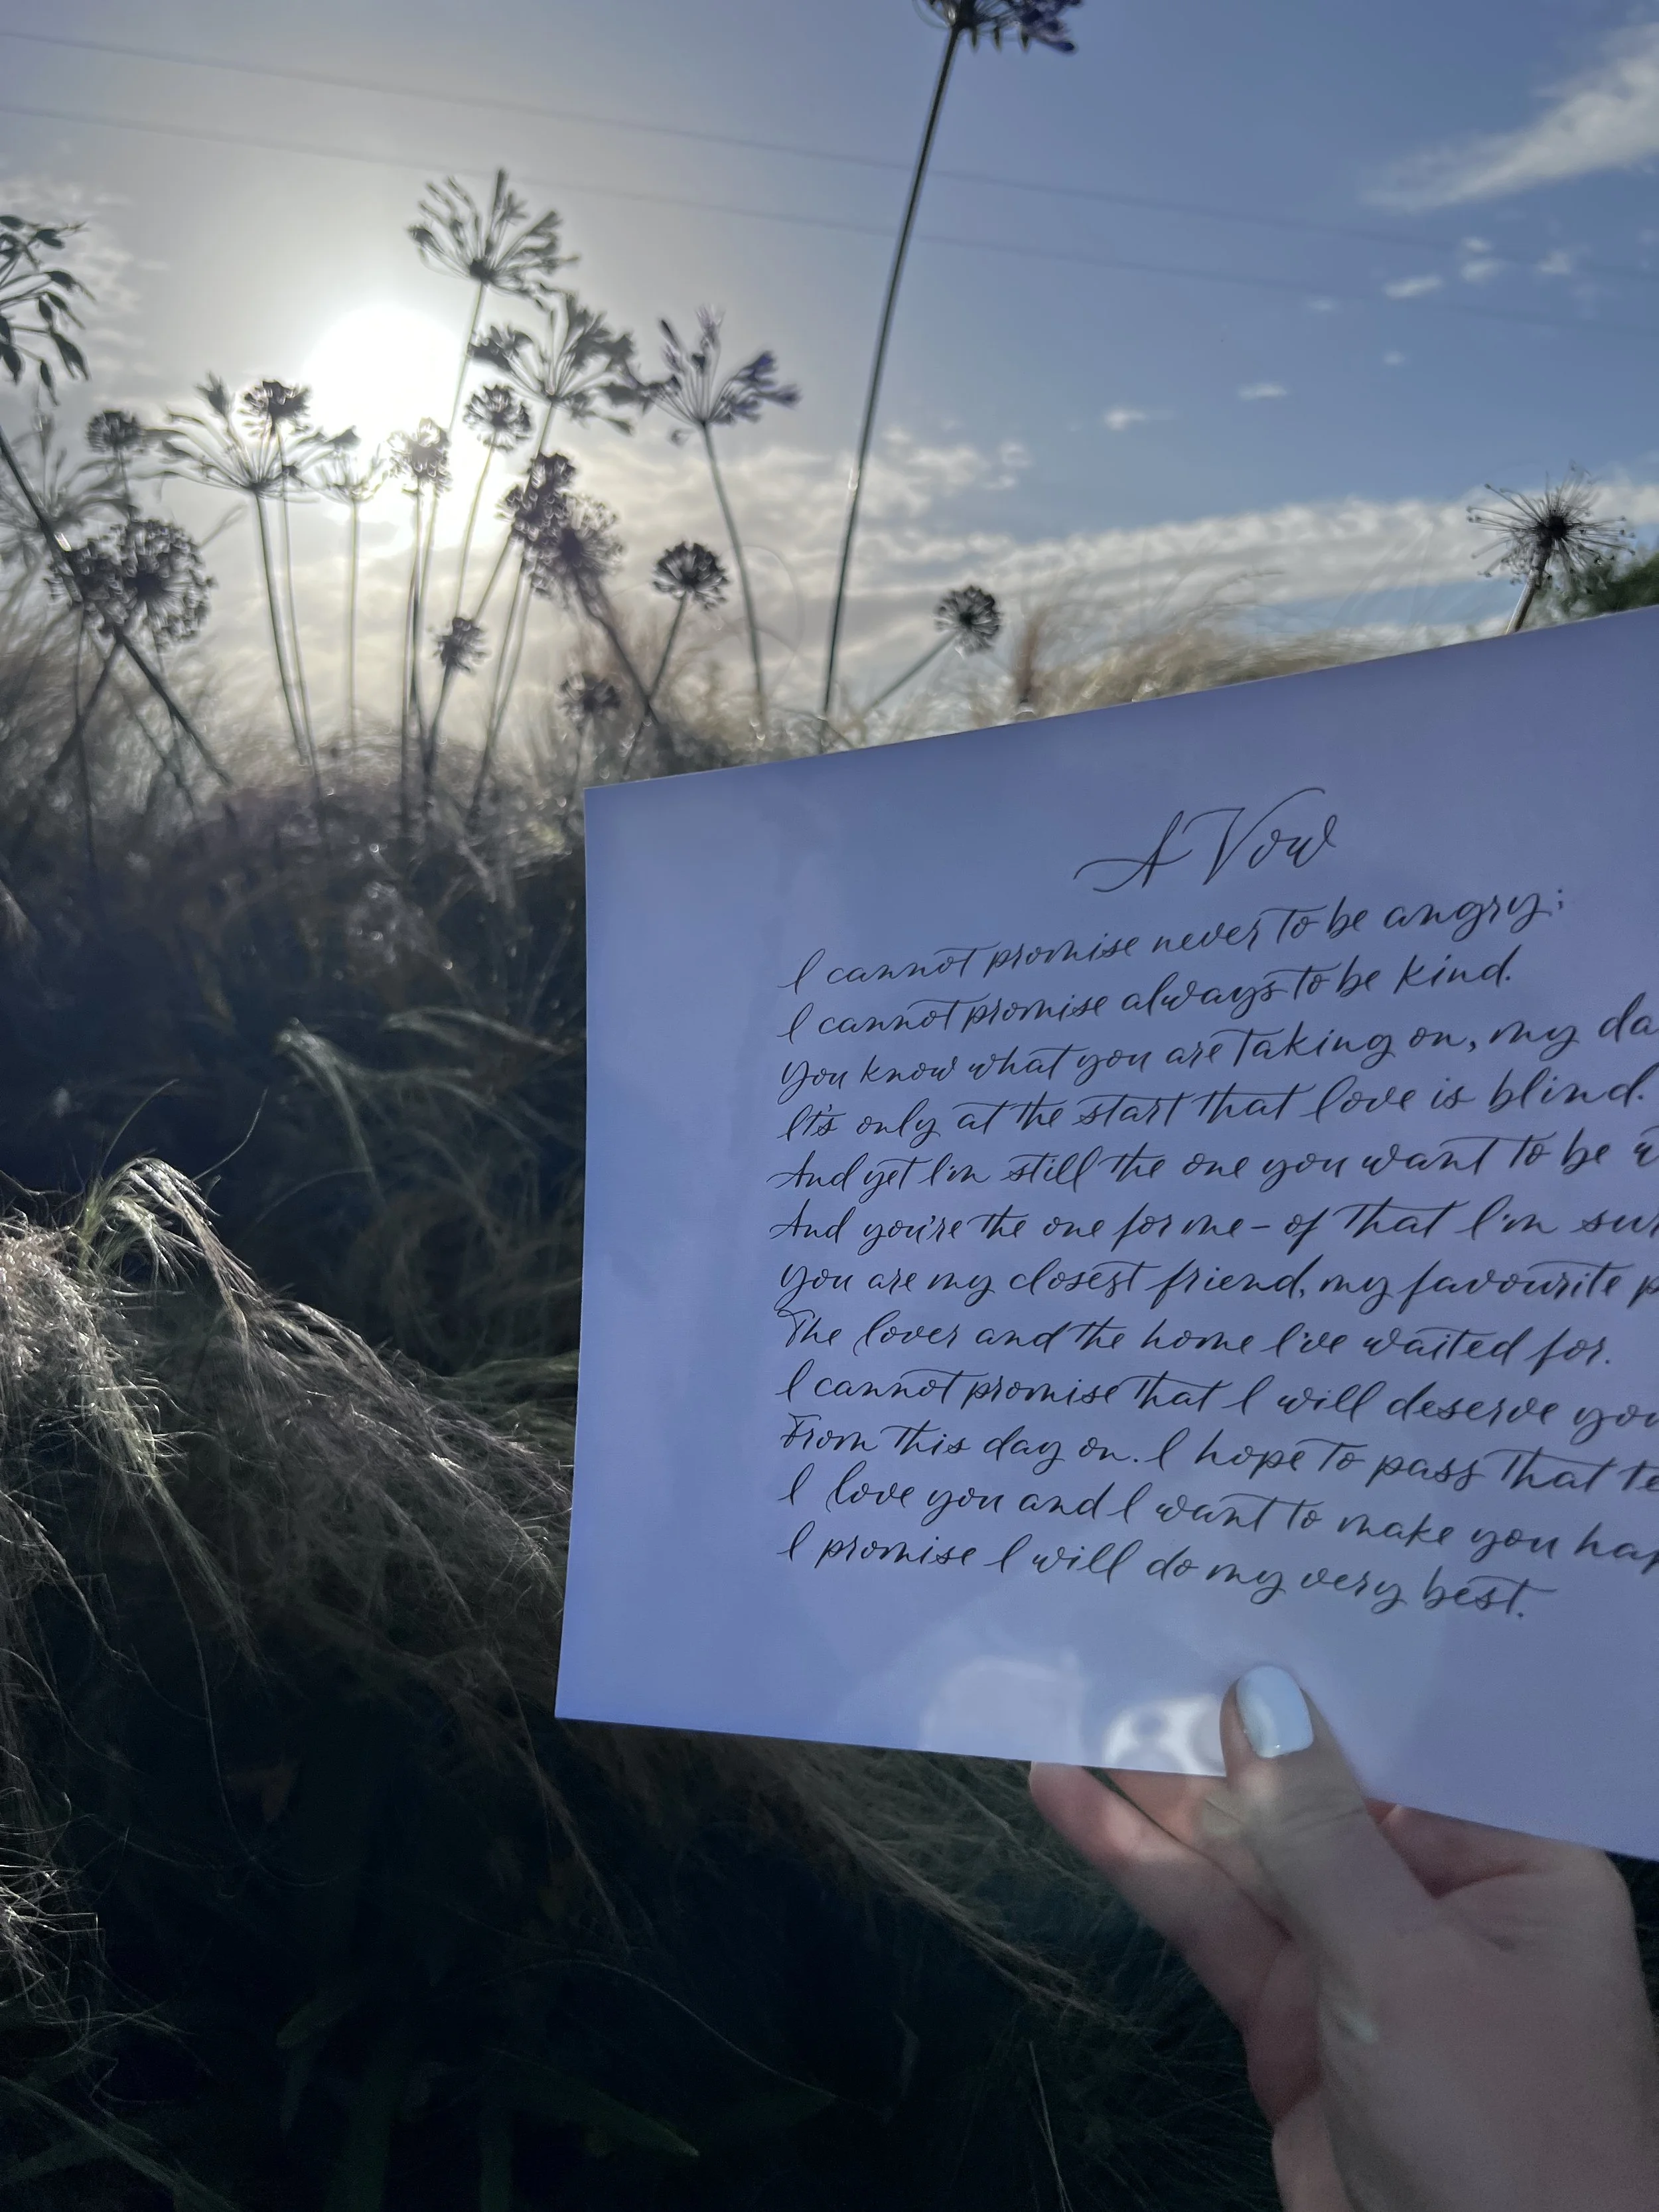 A Vow
I cannot promise never to be angry;
I cannot promise always to be kind.
You know what you are taking on, my
It's only at the start that love is blind.
And yet I'm still the one you want to be
And you're the one for me – of that I'm
You are my closest friend, my favourite
The lover and the home I've waited for.
I cannot promise that I will deserve you
From this day on. I hope to pass that
I love you and I want to make you
I promise I will do my very best.